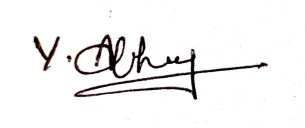 Y. Abhay